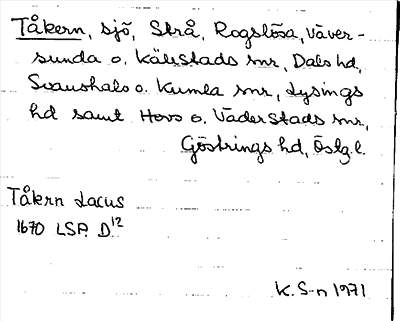 Tåkern, sjö, Strå, Rogslösa, Väver-
sunda o. Källstads snr, Dals hd,
Svanshals o. Kumla snr, Lysings
hd samt Hovs o. Väderstads snr,
Göstrings hd, Östg. l.
Tåkern Lacus
1670 LSA D¹²
K. S-n 1971